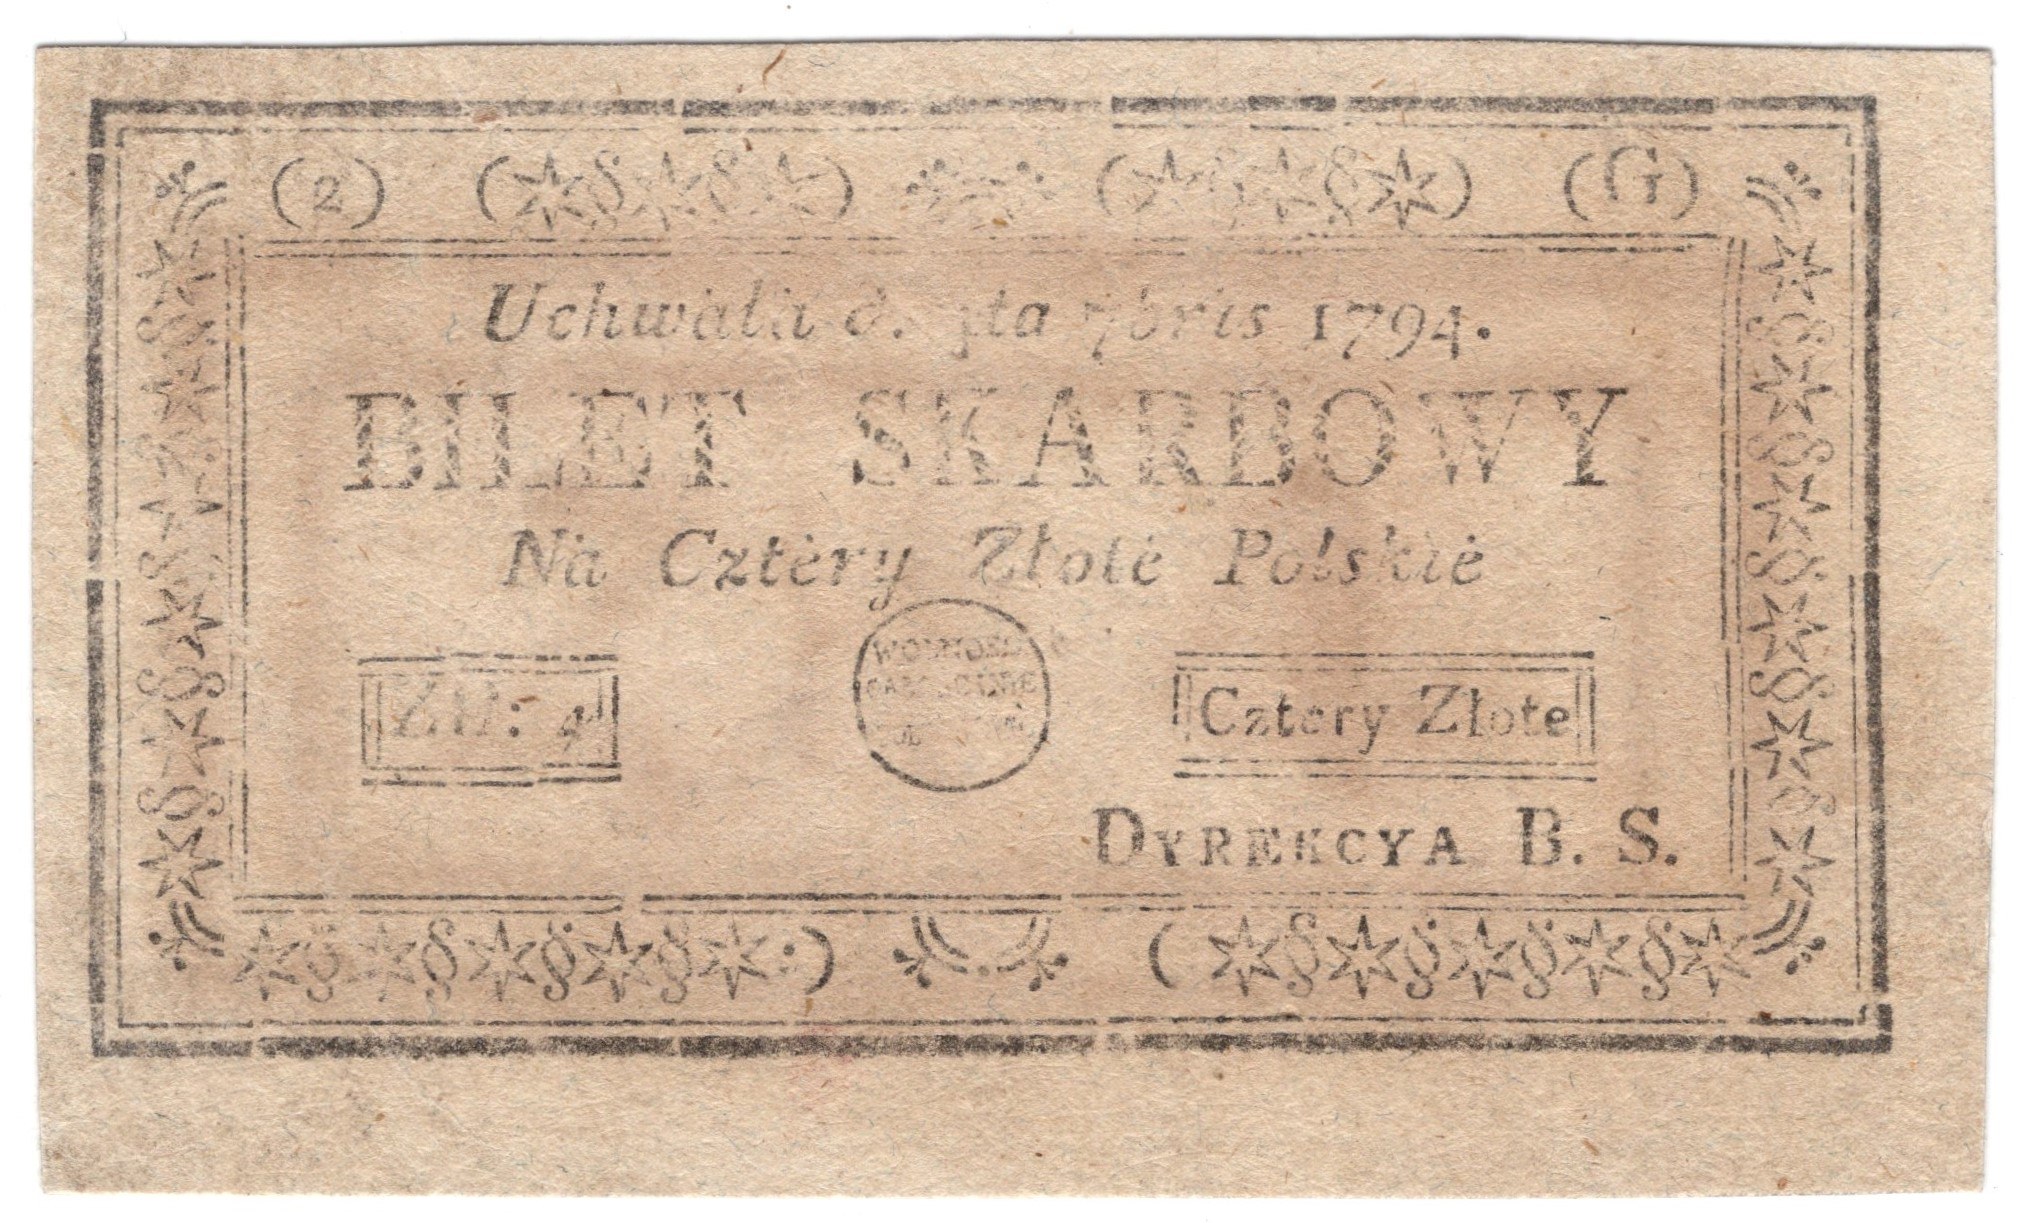 (2) (G)
Uchwała d. 4ta 7bris 1794.
BILET SKARBOWY
Na Cztèry Złotè Polskiè
Złł: 4
Cztery Złote
DYREKCYA B. S.